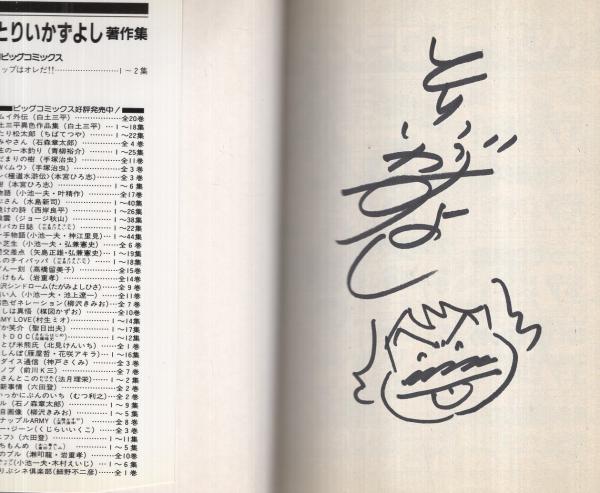 とりいかずよし著作集
ビッグコミックス
ップはオレだ!!……………………1～2集
ビッグコミックス好評発売中/
ムイ外伝(白土三平)……………全20巻
土三平異色作品集(白土三平)…1～18集
たり松太郎(ちばてつや)………1～22集
みやさん(石森章太郎)…………全4巻
生の一本釣り(青柳裕介)………1～25集
だまりの樹(手塚治虫)…………全11巻
W(ムウ)(手塚治虫)……………全3巻
(極道水滸伝)(本宮ひろ志)……全3巻
(本宮ひろ志)……………………1～6集
物語(小池一夫・叶精作)………全17巻
ぶさん(水島新司)………………1～40集
焼けの詩(西岸良平)……………1～26集
雲(ジョージ秋山)………………1～38集
バカ日誌…………………………1～22集
手物語(小池一夫・神江里見)…1～44集
芝生(小池一夫・弘兼憲史)……全6巻
交差点(矢島正雄・弘兼憲史)…1～19集
のチイパッパ……………………1～18集
ぞん一刻(高橋留美子)…………全15巻
っけもん(岩重孝)………………全14巻
沢シンドローム(たがみよしひさ)…全9巻
い人(小池一夫・池上遼一)……全11巻
色ゼネレーション(柳沢きみお)…全7巻
しは真悟(楳図かずお)…………全10巻
MY LOVE(村生ミオ)……………1～14集
か笑介(聖日出夫)………………1～17集
トDOC……………………………1～12集
とび米熊氏(北見けんいち)……全1巻
しんぼ(雁屋哲・花咲アキラ)…1～16集
ダイス通信(神戸さくみ)………全3巻
ノブ(前川K三)…………………全7巻
さんとこの(法月理栄)…………1～2集
新事情(六田登)…………………全2巻
いっかにぶんのいち(むつ利之)…全2巻
ル(石ノ森章太郎)………………1～9集
自画像(柳沢きみお)……………1～5集
ナップルARMY…………………全8巻
ー・ジーン(くじらいいくこ)…全3巻
ニア)(六田登)…………………1～11集
ちもんめ…………………………1～5集
のブル(瀬叩龍・岩重孝)………全10巻
(小池一夫・木村えいじ)………1～6集
りぶシネ倶楽部(細野不二彦)…全1巻
とりい
かずよし